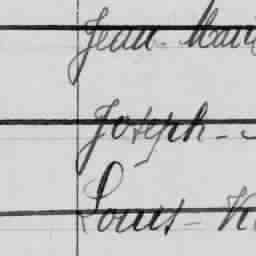 Jean-Marie
Joseph-
Louis-